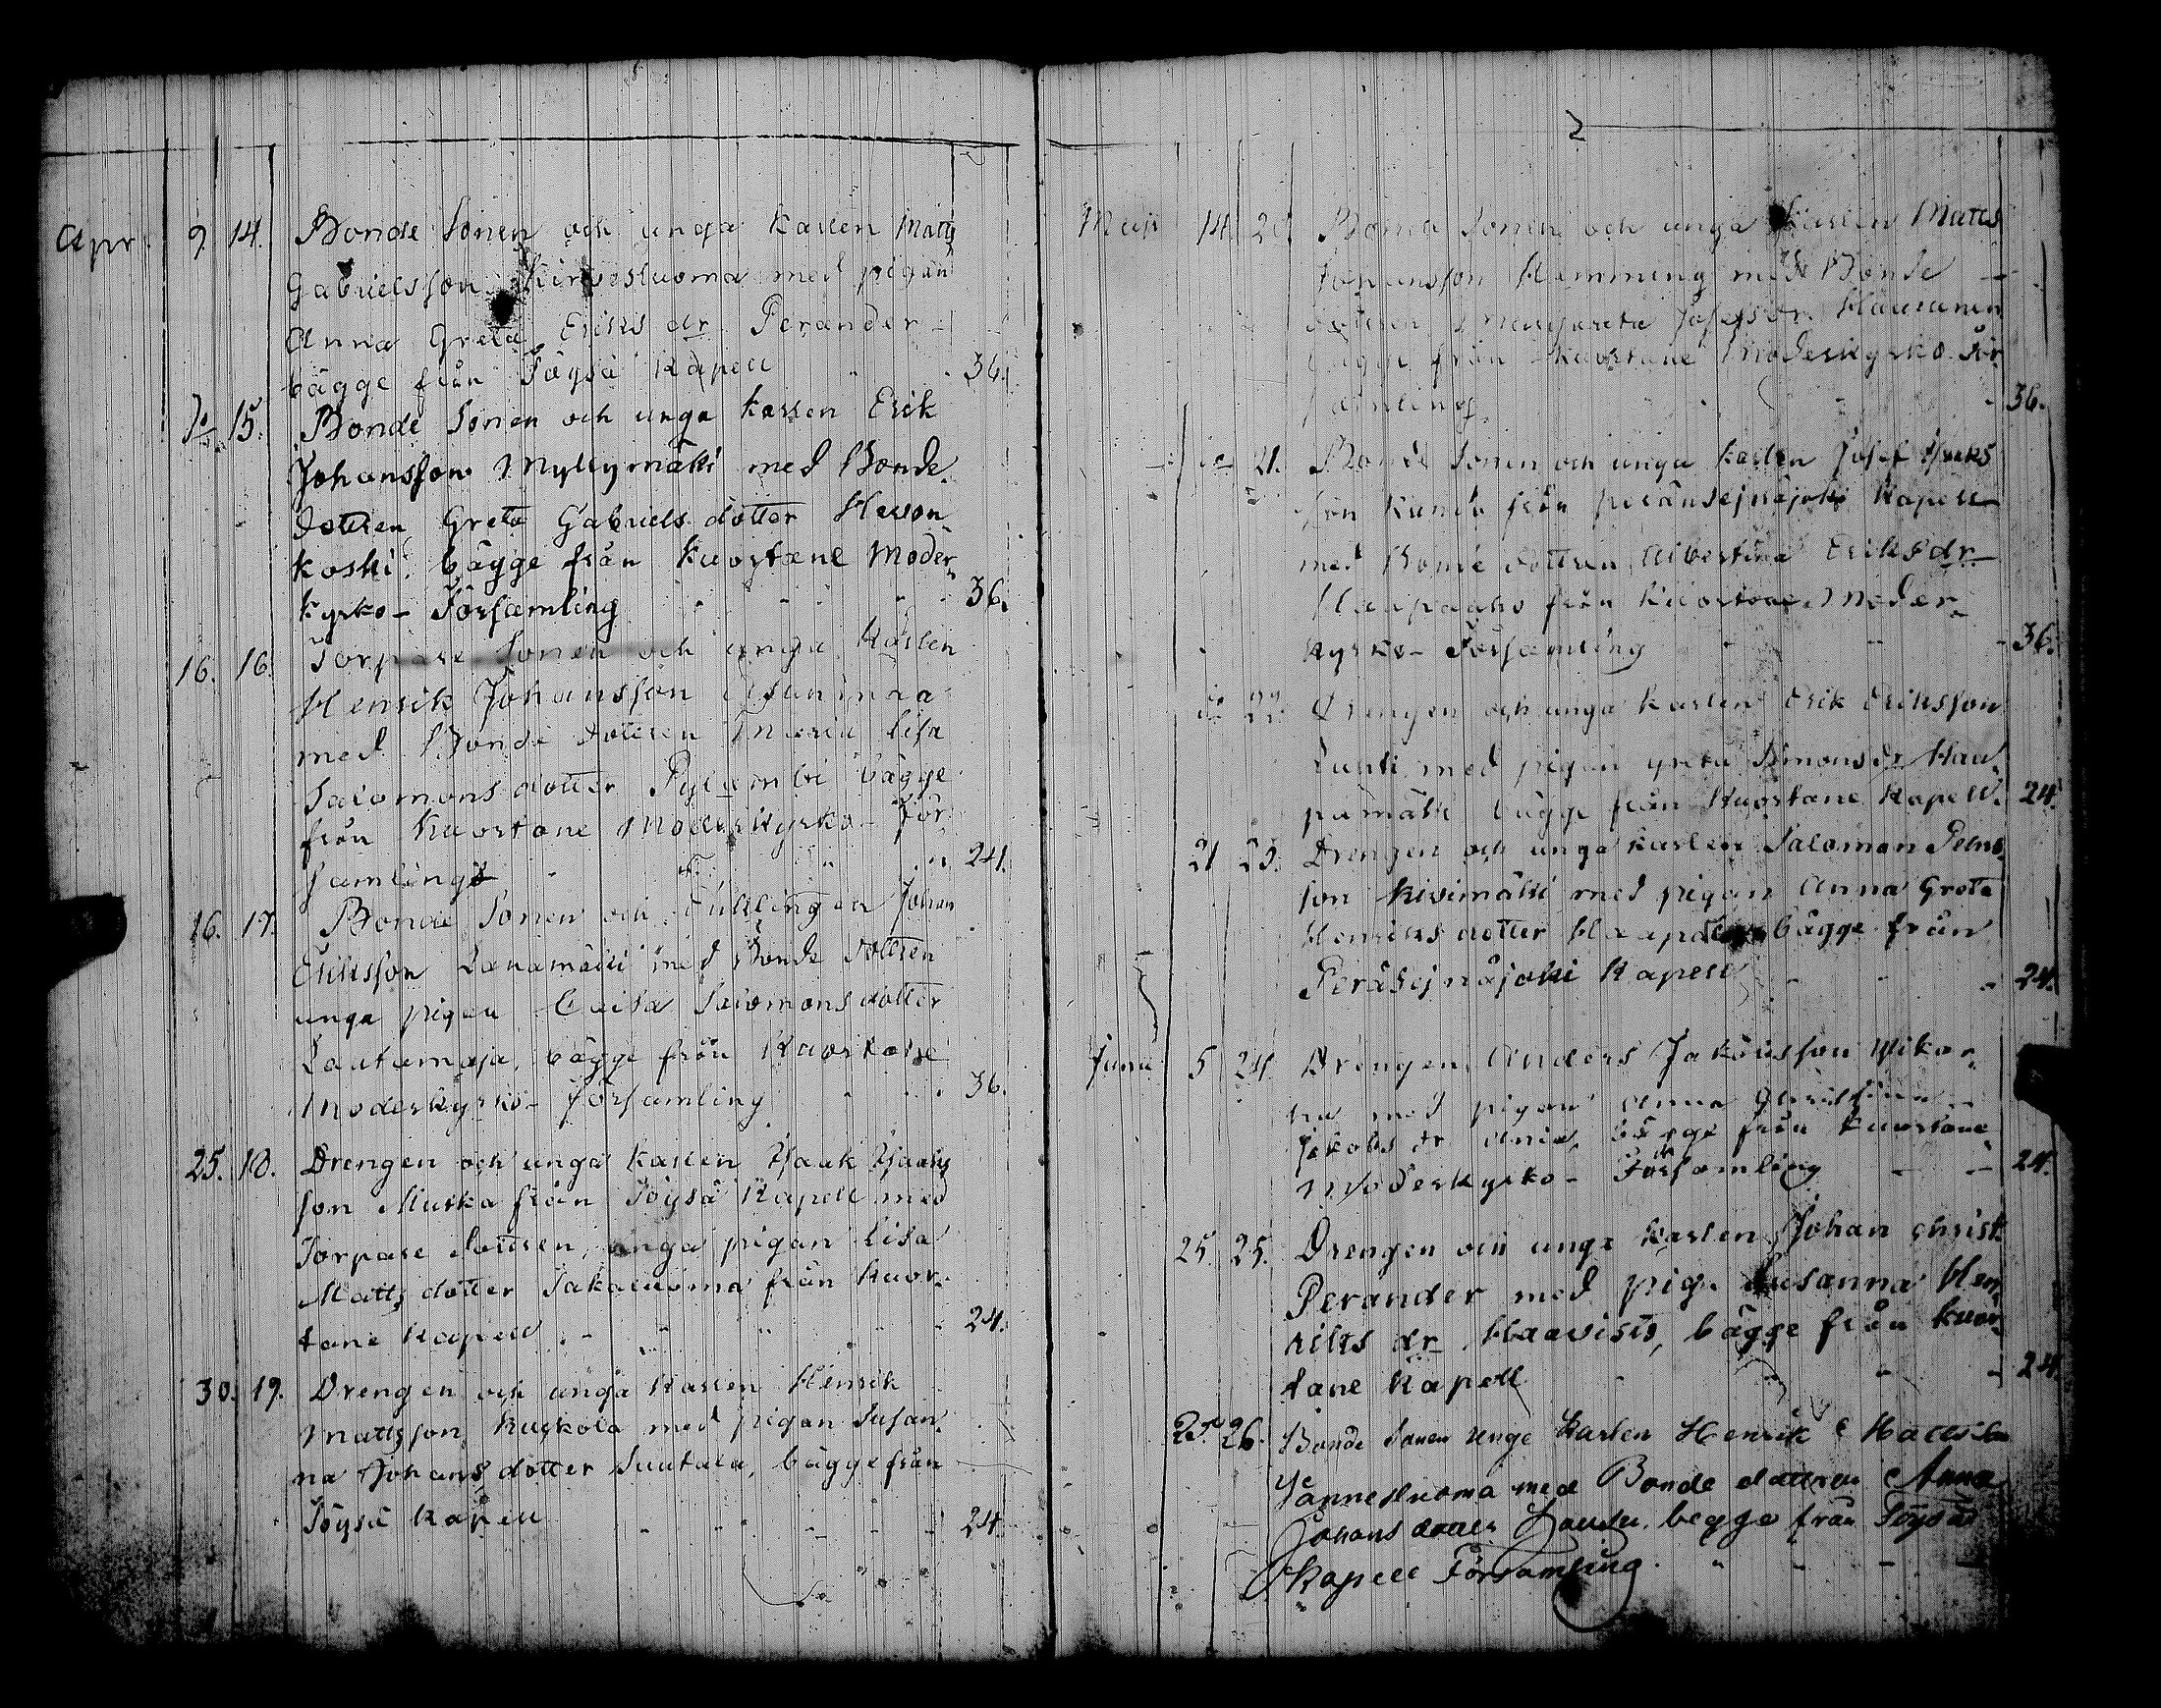 Apr. 9 14. Bonde Sonen och unga karlen Matts
Gabrielsson Hirvesluoma med pigan
Anna Greta Eriks dr Perander
bägge från Töysä Kapell 36.
do 15. Bonde Sonen och unga karlen Erik
Johansson Myllymäki med Bonde
dottren Greta Gabriels dotter Herron
koski bägge från Kuortane Moder
kyrko- Församling 36.
16. 16. Torpare Sonen och unga Karlen
Henrik Johansson Asunmaa
med Bonde dottren Maria Lisa
Salomons dotter bägge
från Kuortane Moderkyrko- För
samling 24.
16. 17. Bonde Sonen och Johan
Eriksson Lanamäki med Bonde dottren
unga pigan Caisa Salomons dotter
Lautamaja, bägge från Kuortane
Moderkyrko- församling 36.
25. 18. Drengen och unga karlen Isaak Isaaks
son Muska från Töysä Kapell med
Torpare dottren, unga pigan Lisa
Matts dotter Sakaluoma från Kuor
tane Kapell 24.
30. 19. Drengen och unga karlen Henrik
Mattsson Kuskola med pigan Susan
na Johans dotter Suutala, bägge från
Töysä Kapell 24.
2
Maji 14. 20. Bonde Sonen och unga Karlen Matts
Johansson Hemming med Bonde
dottren Margareta Josefs dr
bägge från Kuortane Moderkyrko För
samling 36.
do 21. Bonde Sonen och unga karlen Josef Isaks
son från Peränsejnäjoki Kapell
med Bonde dottren Albertina Eriks dr
Haapaaho från Kuortane Moder
kyrko- Församling 36.
do 22. Drengen och unga karlen Erik Eriksson
med pigan Greta Simons dr Haa
pamäki bägge från Kuortane Kapell. 24.
21 23. Drengen och unga karlen Salomon Petters
son Kivimäki med pigan Anna Greta
Henriks dotter bägge från
Peräsejnäjoki Kapell 24.
Junii 5 24 Drengen Anders Jakobsson
na med pigan Anna
Jakobs dr bägge från Kuortane
Moderkyrko- Församling 24.
25. 25. Drengen och unga karlen Johan Christ.
Perander med pig. Susanna Hen
riks dr Haavisto, bägge från Kuor
tane Kapell 24.
25. 26. Bonde Sonen unge Karlen Henrik Matts Son
Jännesluoma med Bonde dottren Anna
Johans dotter begge från Töysä
Kapell Församling